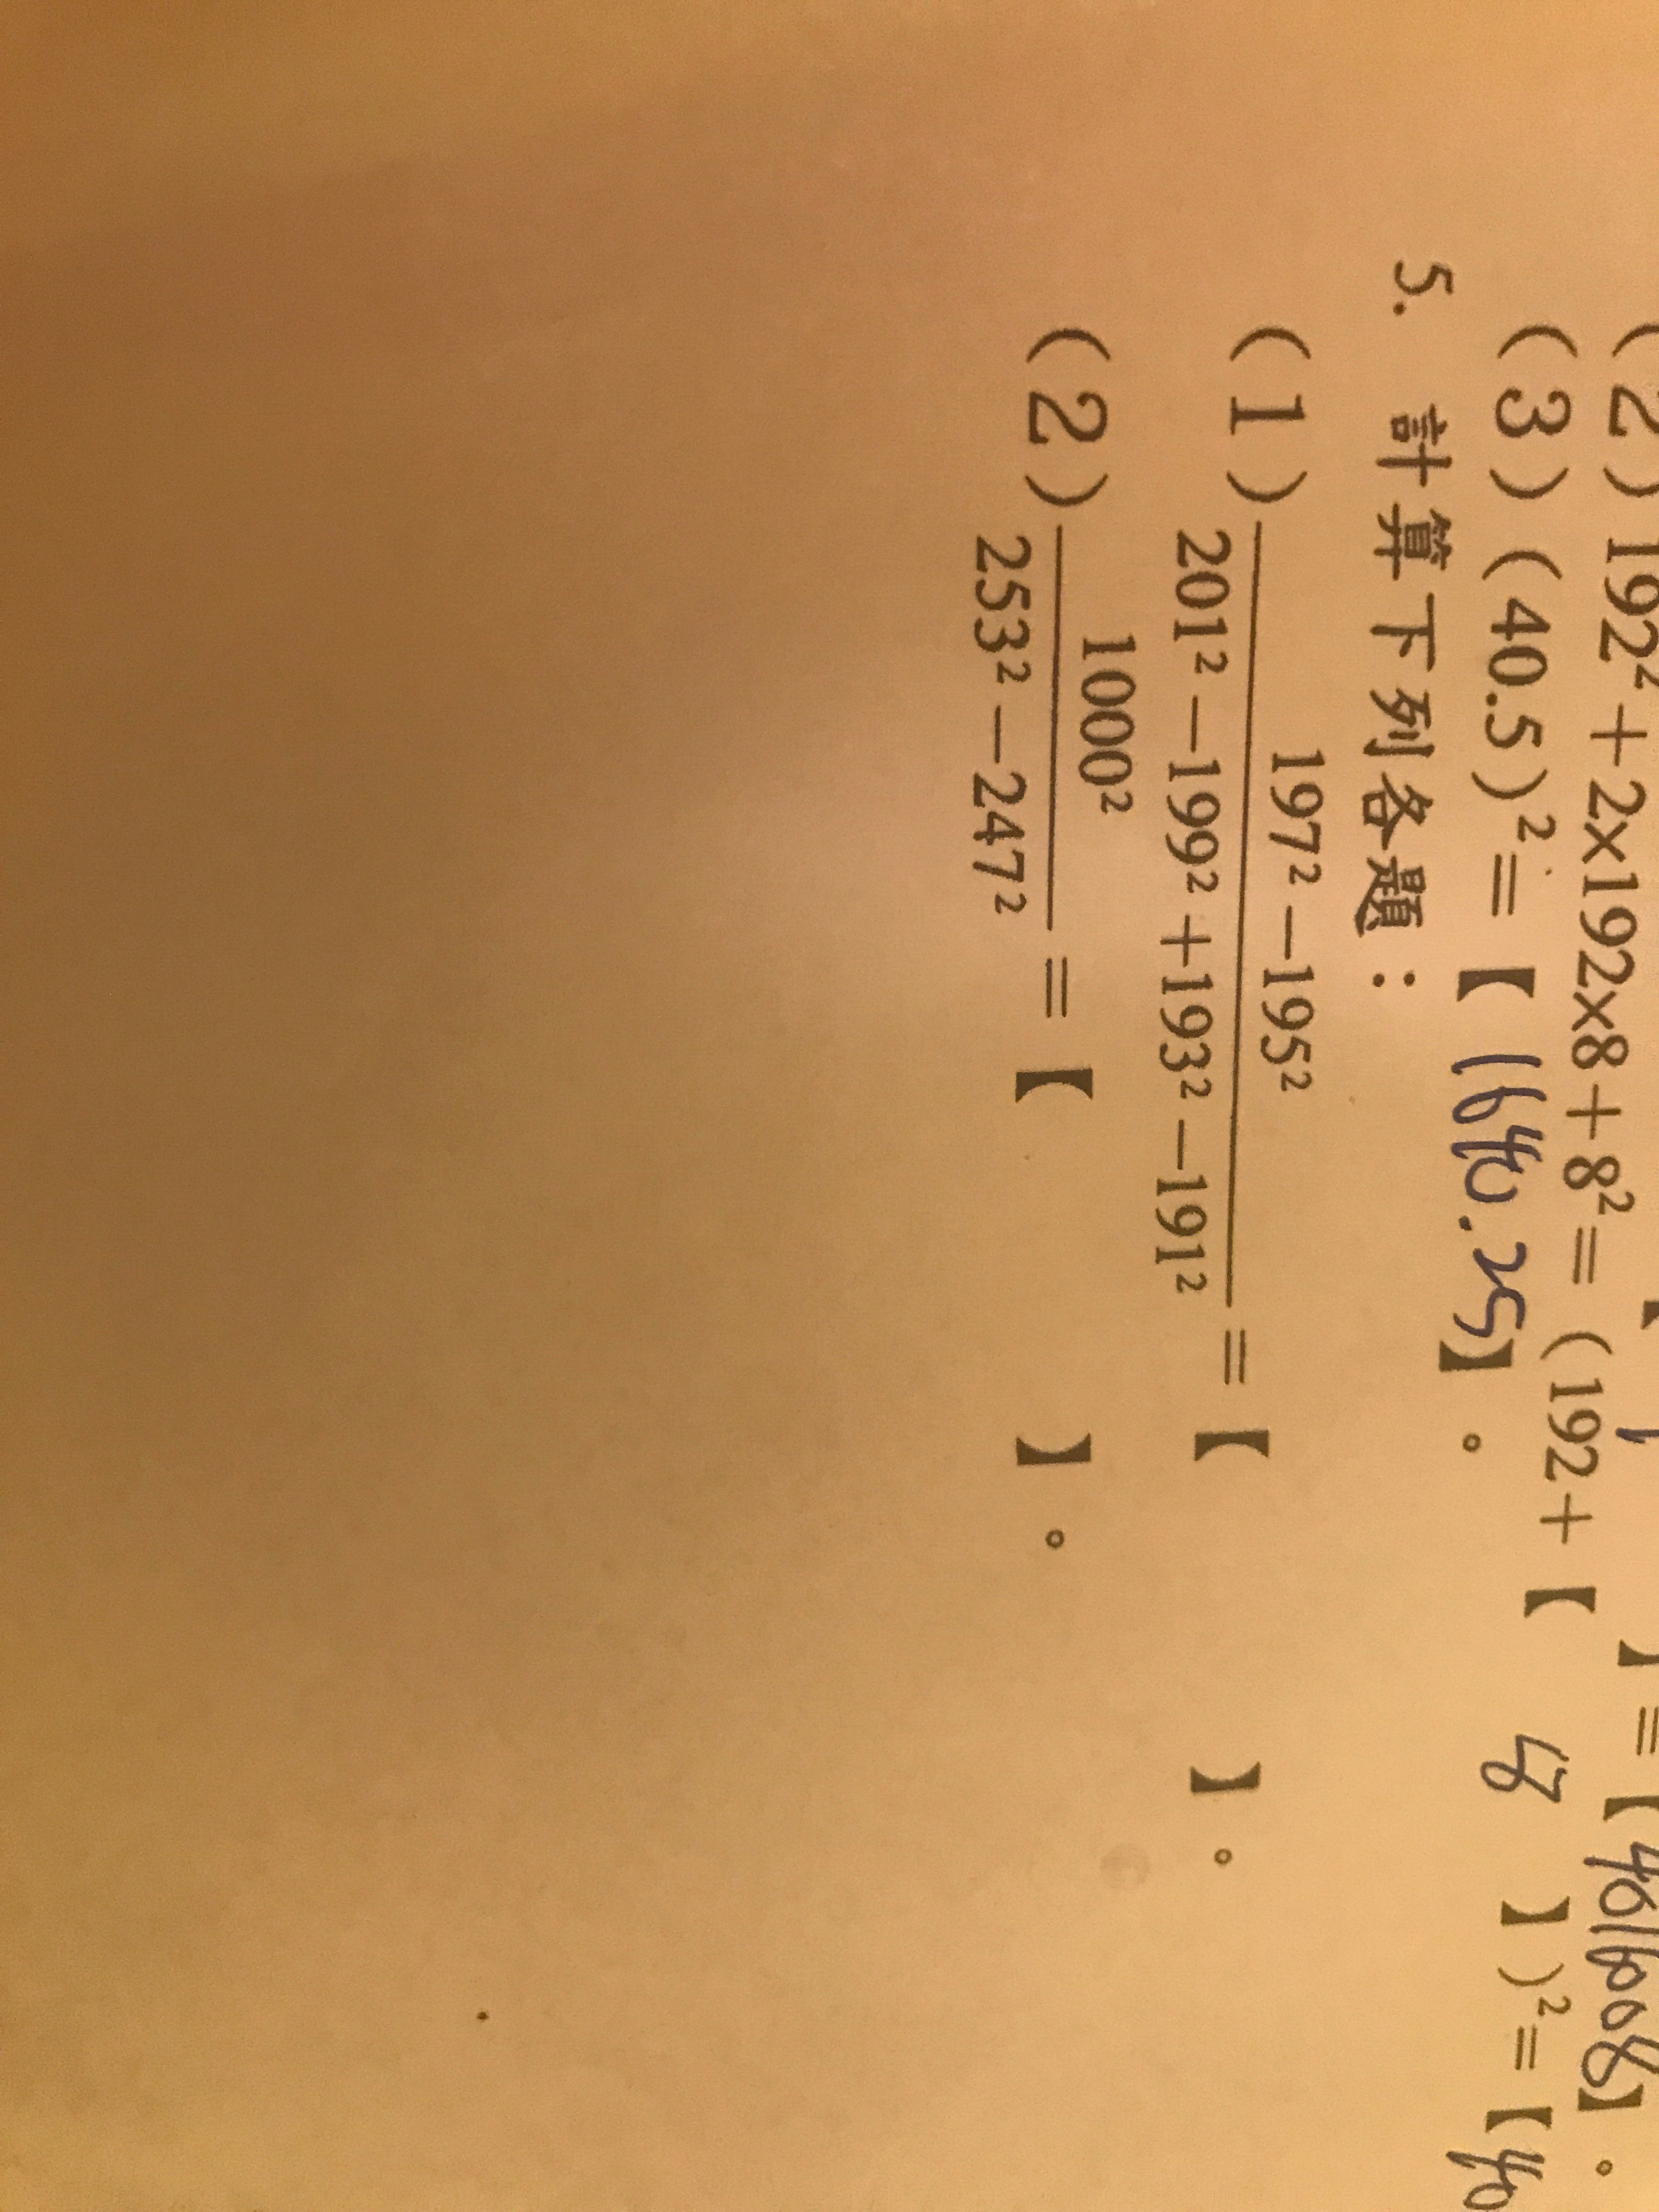 (2) 192²+2×192×8+8²=(192+【 8 】)²=【40
(3) (40.5)²=【1640.25】。
5. 計算下列各題：
(1) 197²−195² / 201²−199²+193²−191² =【 】。
(2) 1000² / 253²−247² =【 】。